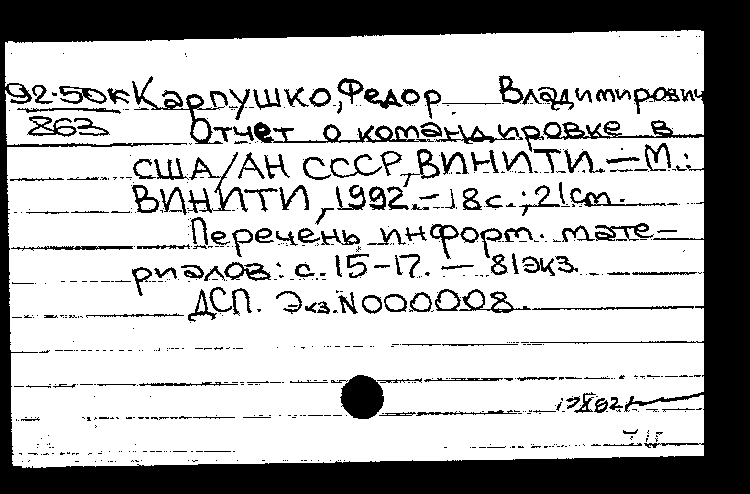 92-50к Карпушко, Федор Владимирович
863 Отчет о командировке в
США/АН СССР, ВИНИТИ.—М.:
ВИНИТИ, 1992.-18с.; 21см.
Перечень информ. мате-
риалов: с. 15-17. — 81экз.
ДСП. Экз. N000008.